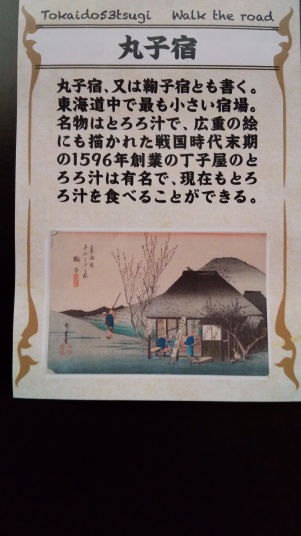 Tokaido53tsugi Walk the road
丸子宿
丸子宿、又は鞠子宿とも書く。
東海道中で最も小さい宿場。
名物はとろろ汁で、広重の絵
にも描かれた戦国時代末期
の1596年創業の丁子屋のと
ろろ汁は有名で、現在もとろ
ろ汁を食べることができる。
鞠子